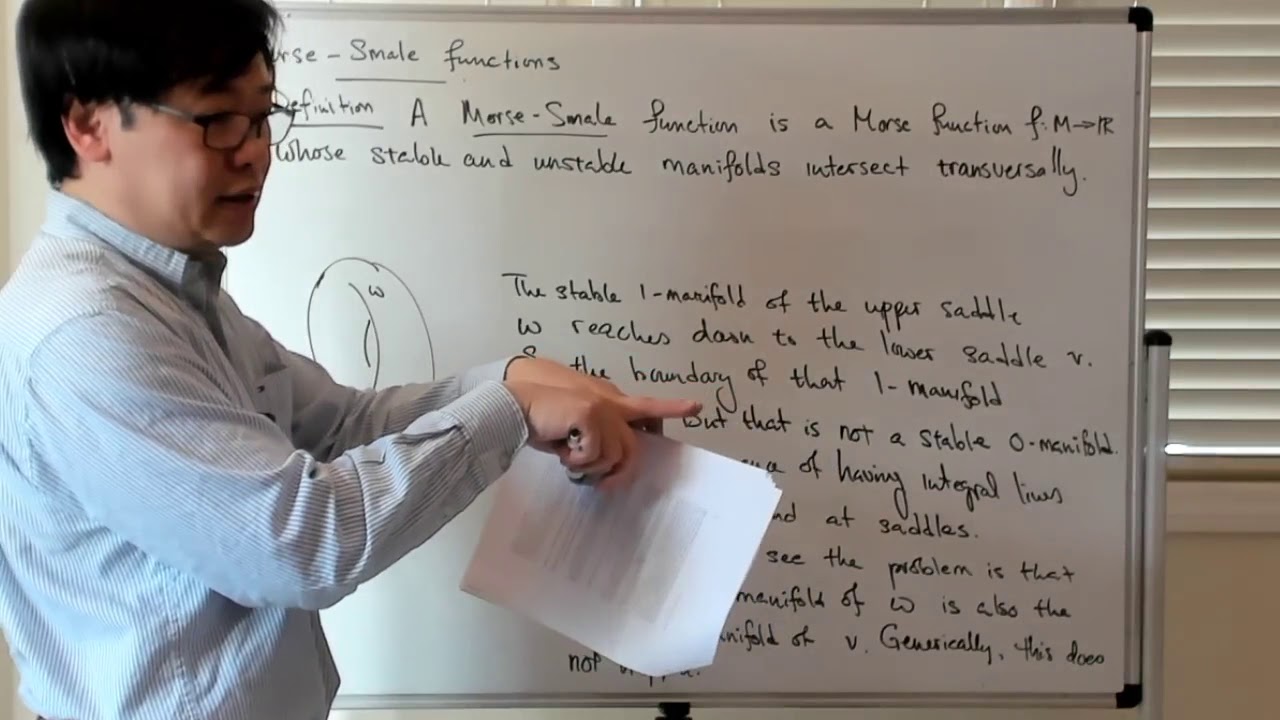 Smale functions
Definition A Morse-Smale function is a Morse function f: M→IR
whose stable and unstable manifolds intersect transversally.
w
The stable 1-manifold of the upper saddle
w reaches down to the lower saddle v.
the boundary of that 1-manifold
But that is not a stable 0-manifold.
of having integral lines
at saddles.
see the problem is that
manifold of w is also the
of v. Generically, this does
not